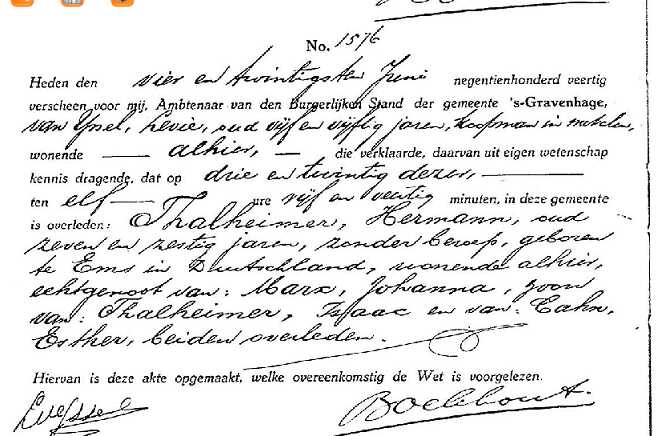 No. 1576
Heden den vier en twintigsten Juni negentienhonderd veertig
verscheen voor mij, Ambtenaar van den Burgerlijken Stand der gemeente 's-Gravenhage,
van IJssel, Levie, oud vijf en vijftig jaren, koopman in metalen,
wonende alhier, die verklaarde, daarvan uit eigen wetenschap
kennis dragende, dat op drie en twintig dezer,
ten elf ure vijf en veertig minuten, in deze gemeente
is overleden: Thalheimer, Hermann, oud
zeven en zestig jaren, zonder beroep, geboren
te Ems in Duitschland, wonende alhier,
echtgenoot van: Marx, Johanna, zoon
van: Thalheimer, Isaac en van: Cahn,
Esther, beiden overleden.
Hiervan is deze akte opgemaakt, welke overeenkomstig de Wet is voorgelezen.
LvIJssel Boekhout.